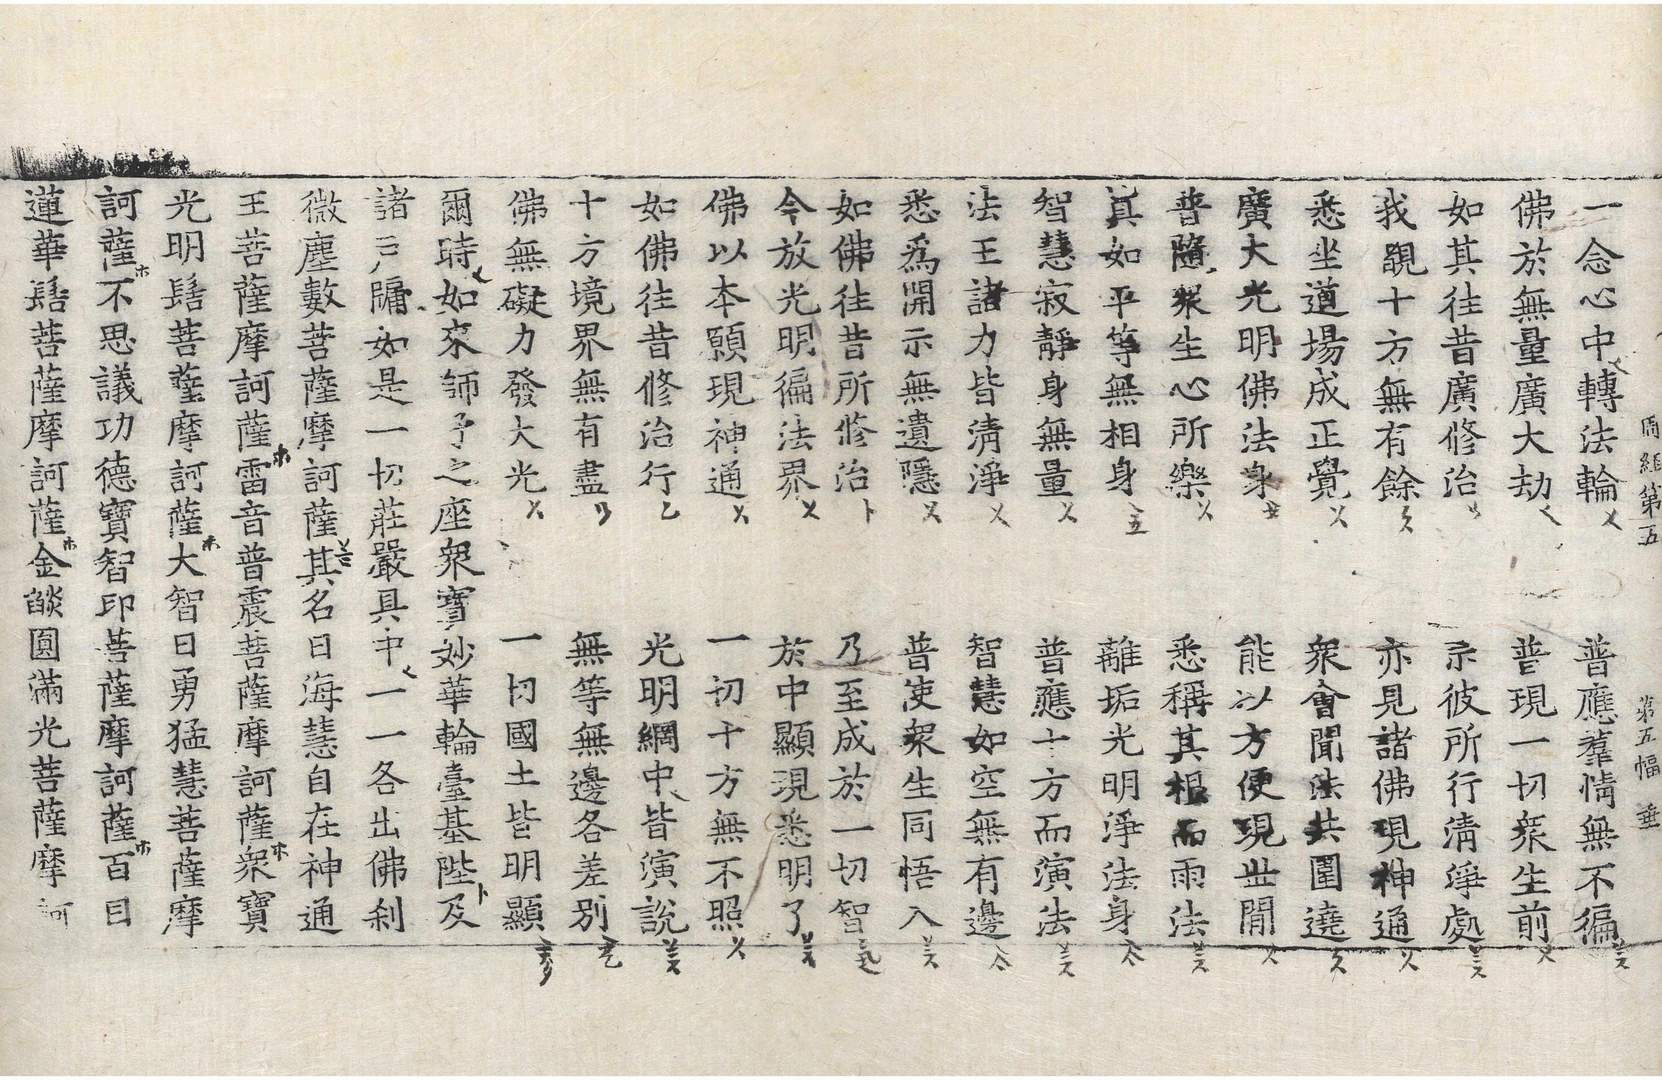 周經第五 第五幅 垂
一念心中轉法輪 普應羣情無不徧
佛於無量廣大劫 普現一切衆生前
如其往昔廣修治 示彼所行清淨處
我覩十方無有餘 亦見諸佛現神通
悉坐道場成正覺 衆會聞法共圍遶
廣大光明佛法身 能以方便現世間
普隨衆生心所樂 悉稱其根而雨法
真如平等無相身 離垢光明淨法身
智慧寂靜身無量 普應十方而演法
法王諸力皆清淨 智慧如空無有邊
悉爲開示無遺隱 普使衆生同悟入
如佛往昔所修治 乃至成於一切智
今放光明徧法界 於中顯現悉明了
佛以本願現神通 一切十方無不照
如佛往昔修治行 光明網中皆演說
十方境界無有盡 無等無邊各差別
佛無礙力發大光 一切國土皆明顯
爾時如來師子之座衆寶妙華輪臺基陛及
諸戶牖如是一切莊嚴具中一一各出佛刹
微塵數菩薩摩訶薩其名曰海慧自在神通
王菩薩摩訶薩雷音普震菩薩摩訶薩衆寶
光明髻菩薩摩訶薩大智日勇猛慧菩薩摩
訶薩不思議功德寶智印菩薩摩訶薩百目
蓮華髻菩薩摩訶薩金燄圓滿光菩薩摩訶